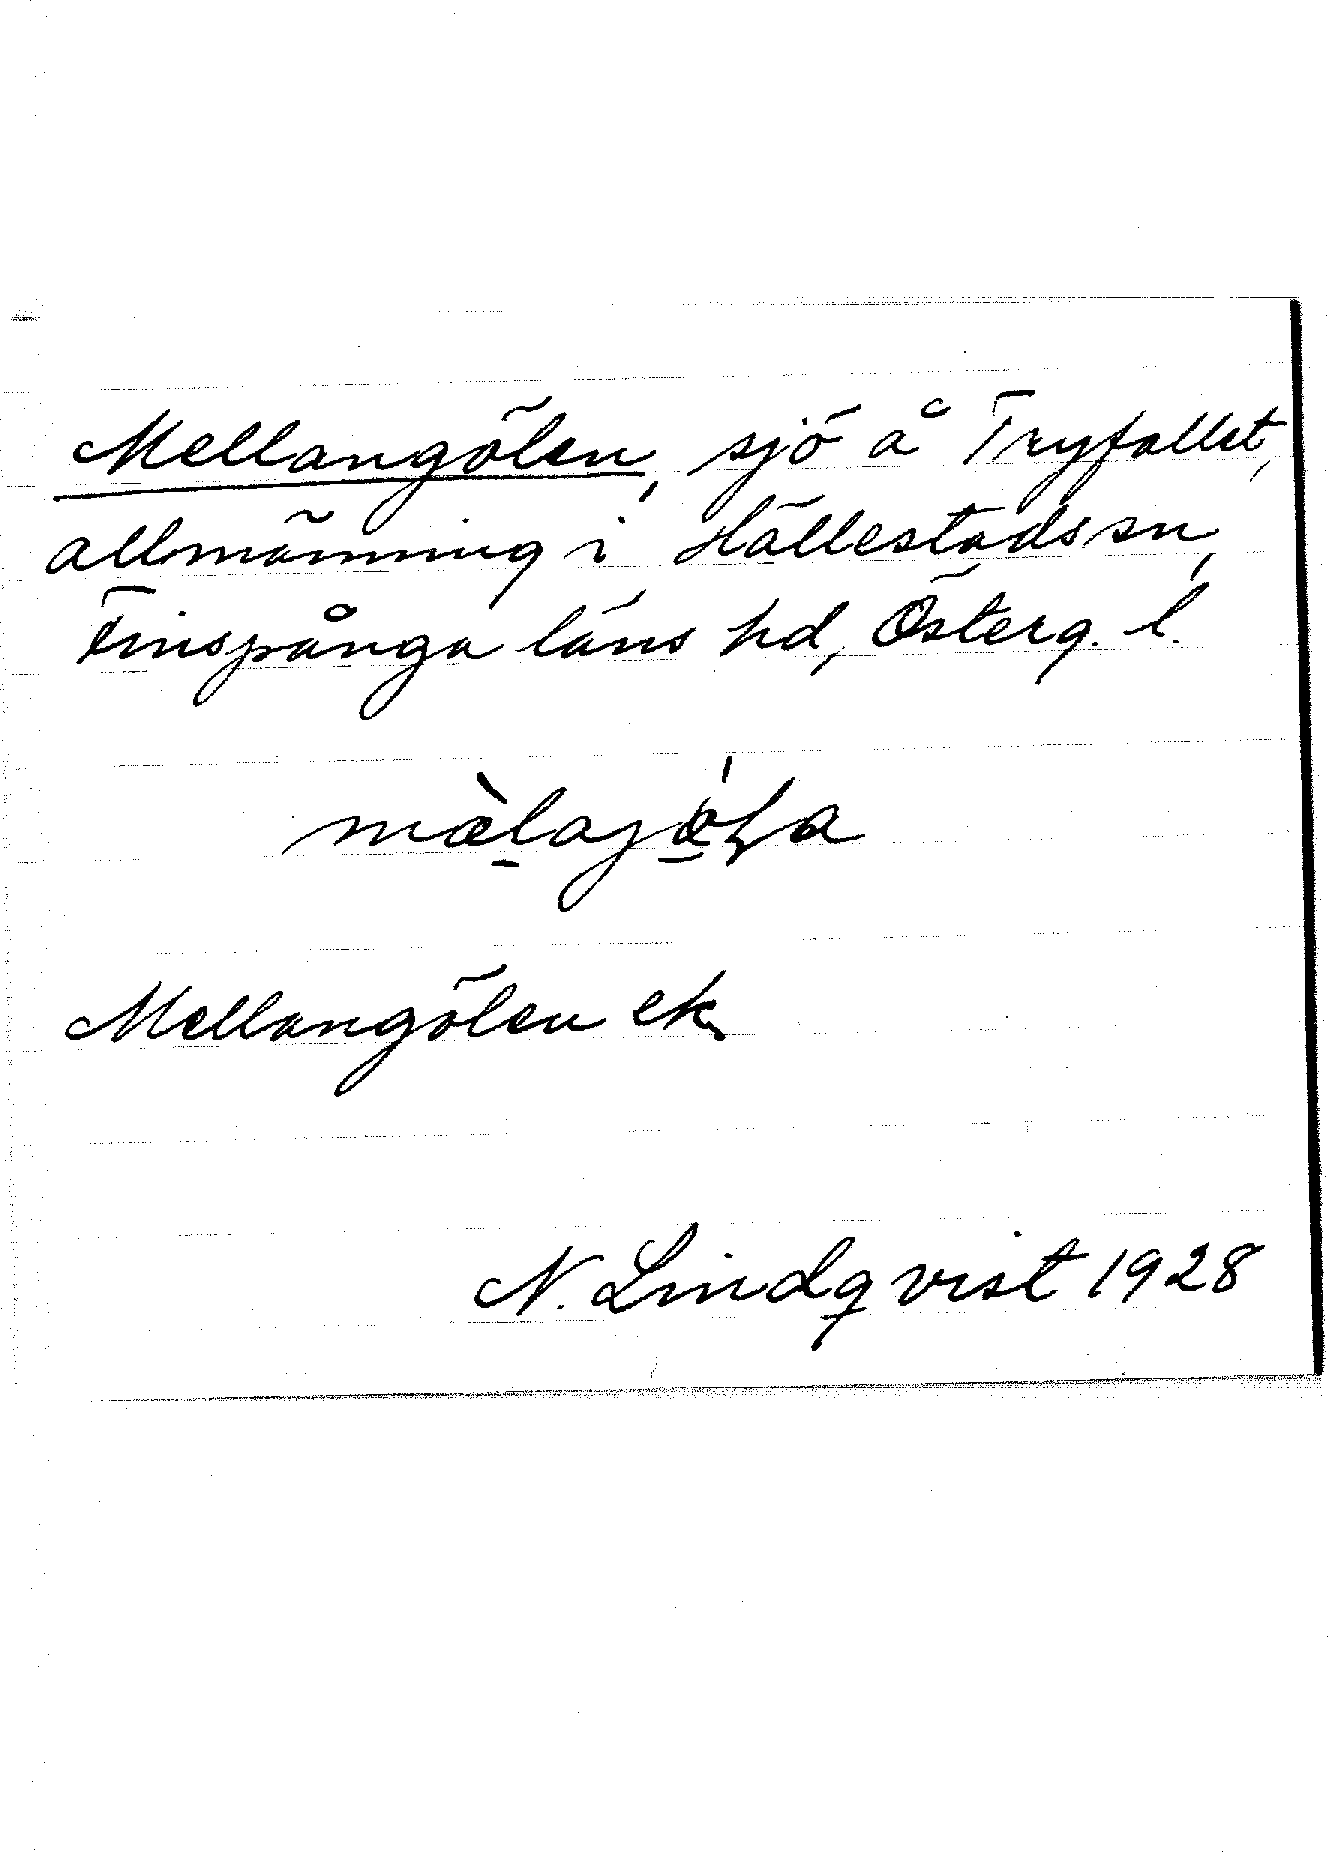 Mellangölen, sjö å Tryfallet,
allmänning i Hällestads sn,
Finspånga läns hd, Österg. l.
Mellangölen ek.
N. Lindqvist 1928